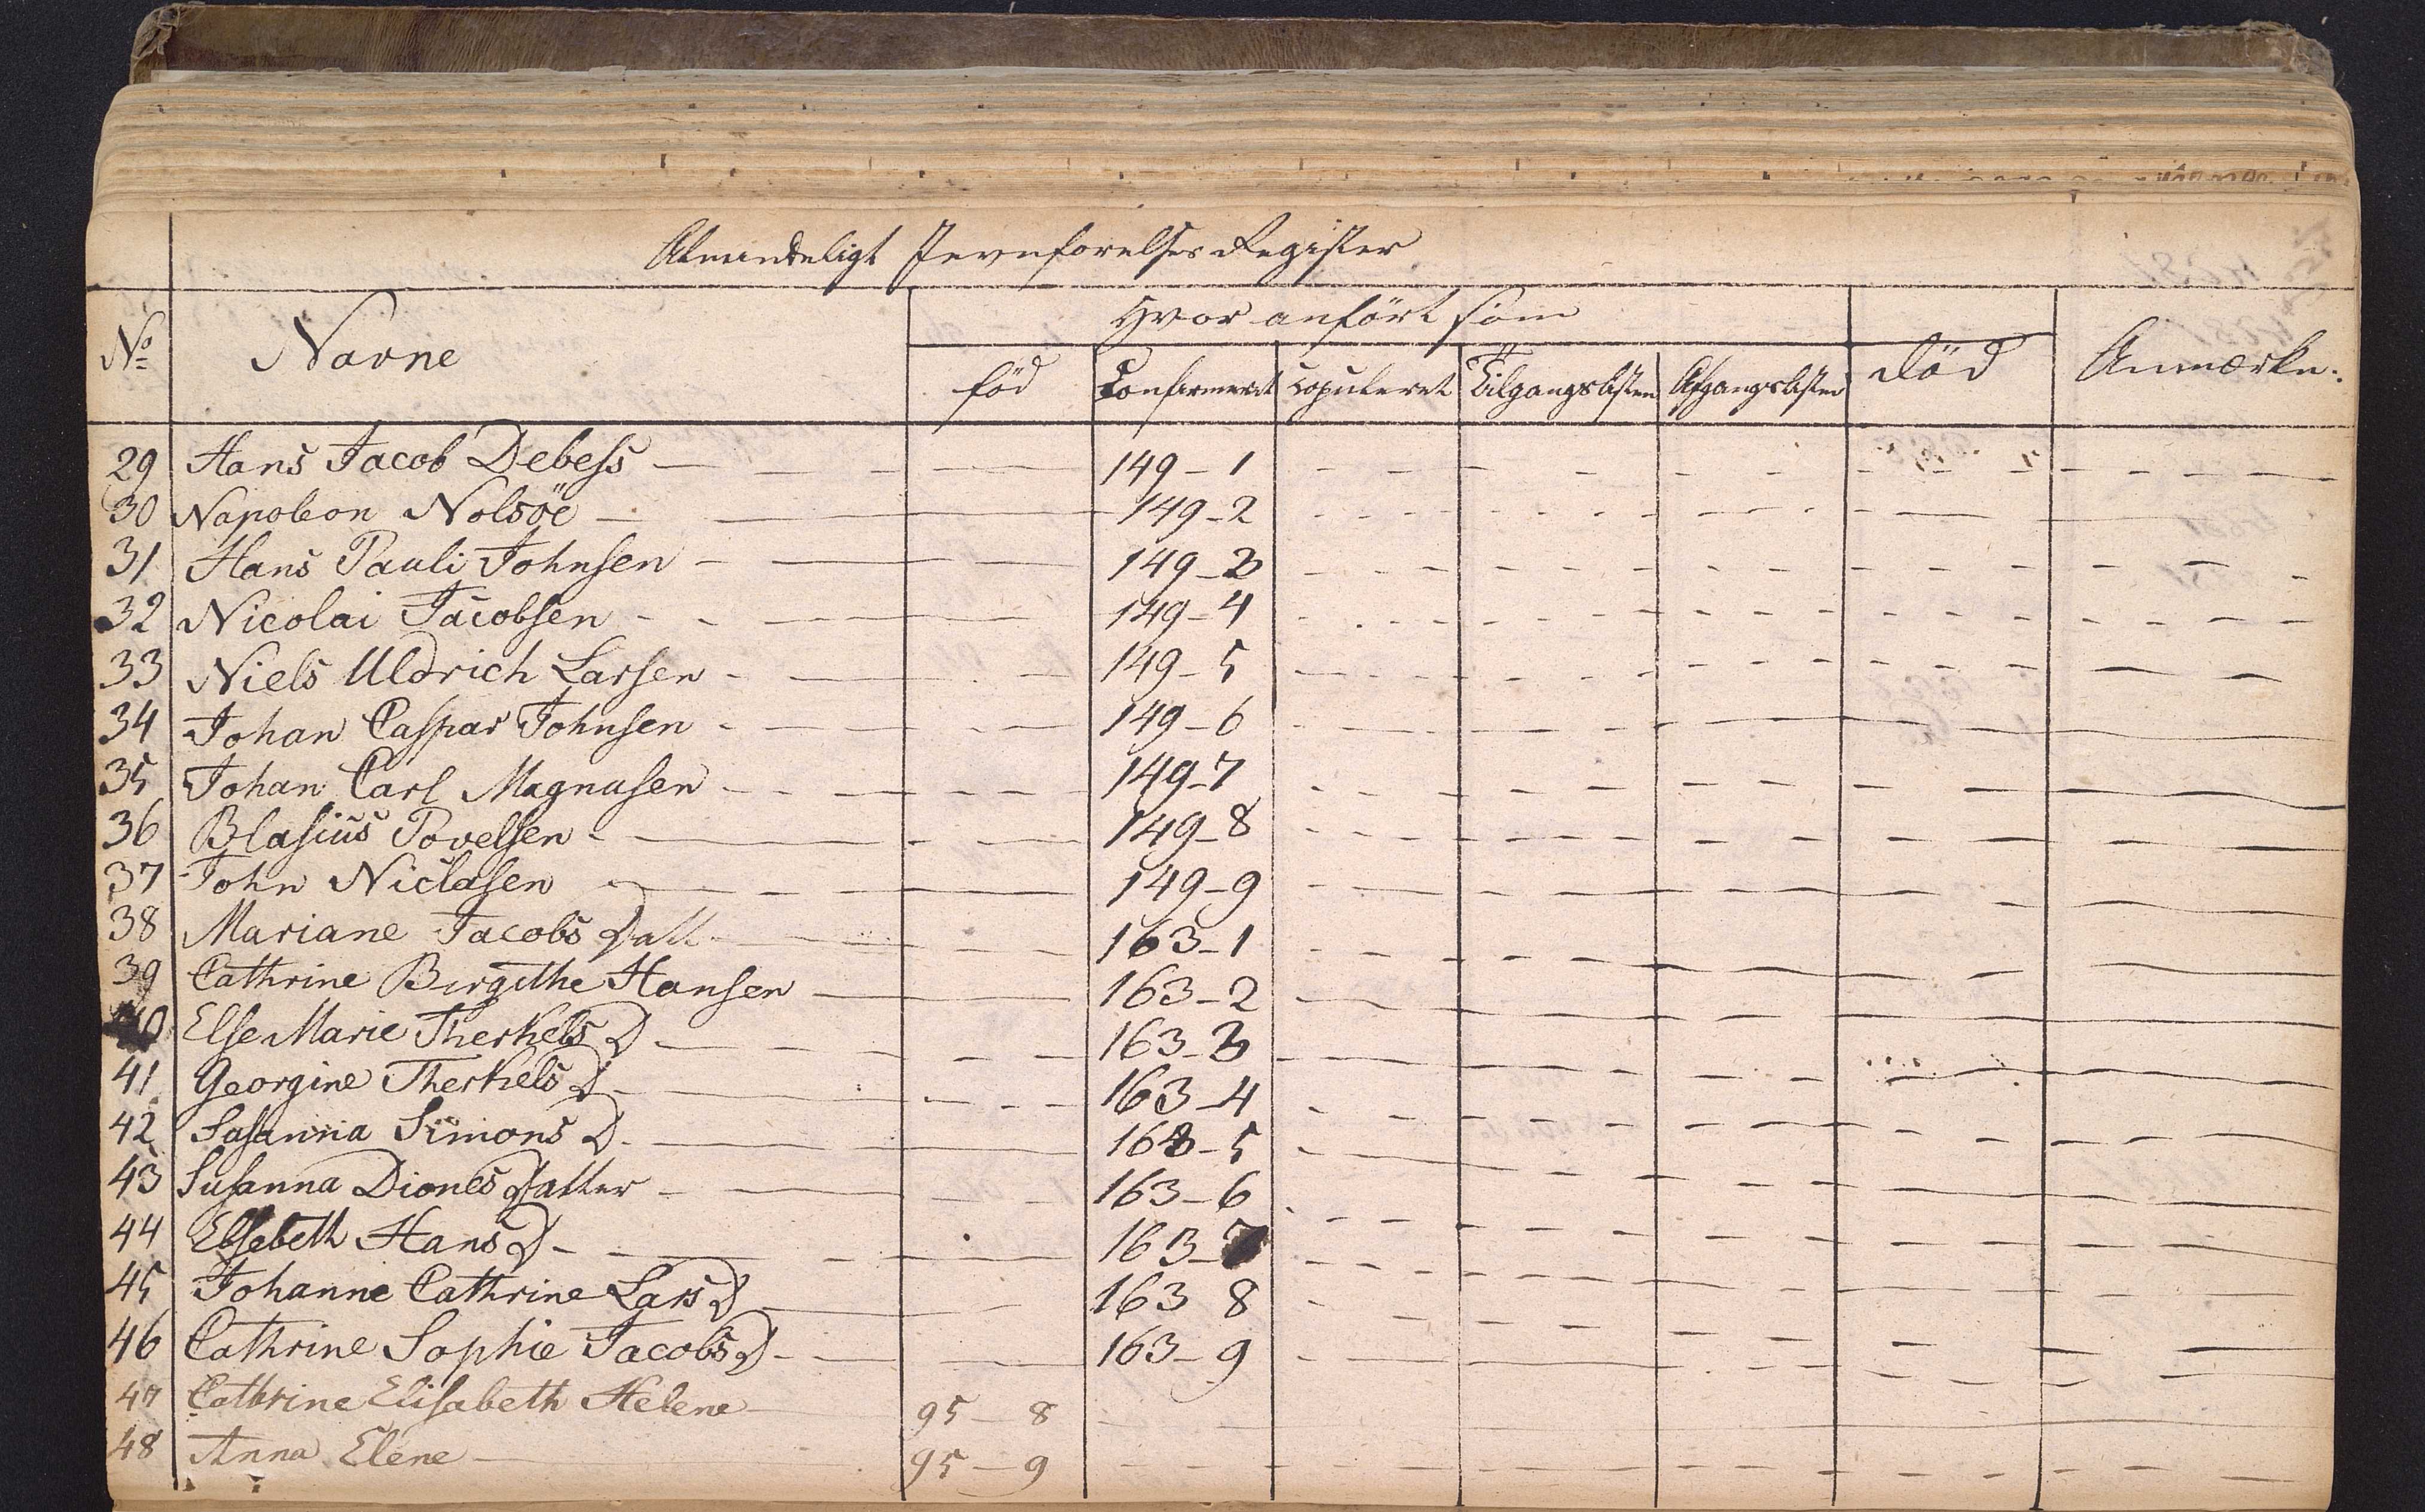 Almindeligt Jevnførelses Register
No Navne Hvor anført som Død Anmærkn:
fød Confirmeret Copuleret Tilgangslisten Afgangslisten
29 Hans Jacob Debess 149-1
30 Napoleon Nolsöe 149-2
31 Hans Pauli Johnsen 149-3
32 Nicolai Jacobsen 149-4
33 Niels Uldrich Larsen 149-5
34 Johan Caspar Johnsen 149-6
35 Johan Carl Magnusen 149-7
36 Blasius Povelsen 149-8
37 John Niclasen 149-9
38 Mariane Jacobs Datt 163-1
39 Cathrine Birgithe Hansen 163-2
40 Else Marie Therkels D 163-3
41 Georgine Therkels D 163-4
42 Susanna Simons D. 163-5
43 Susanna Diones Datter 163-6
44 Elsebeth Hans D 163-7
45 Johanne Cathrine Lars D 163 8
46 Cathrine Sophie Jacobs D 163-9
47 Cathrine Elisabeth Helene 95-8
48 Anna Elene 95-9